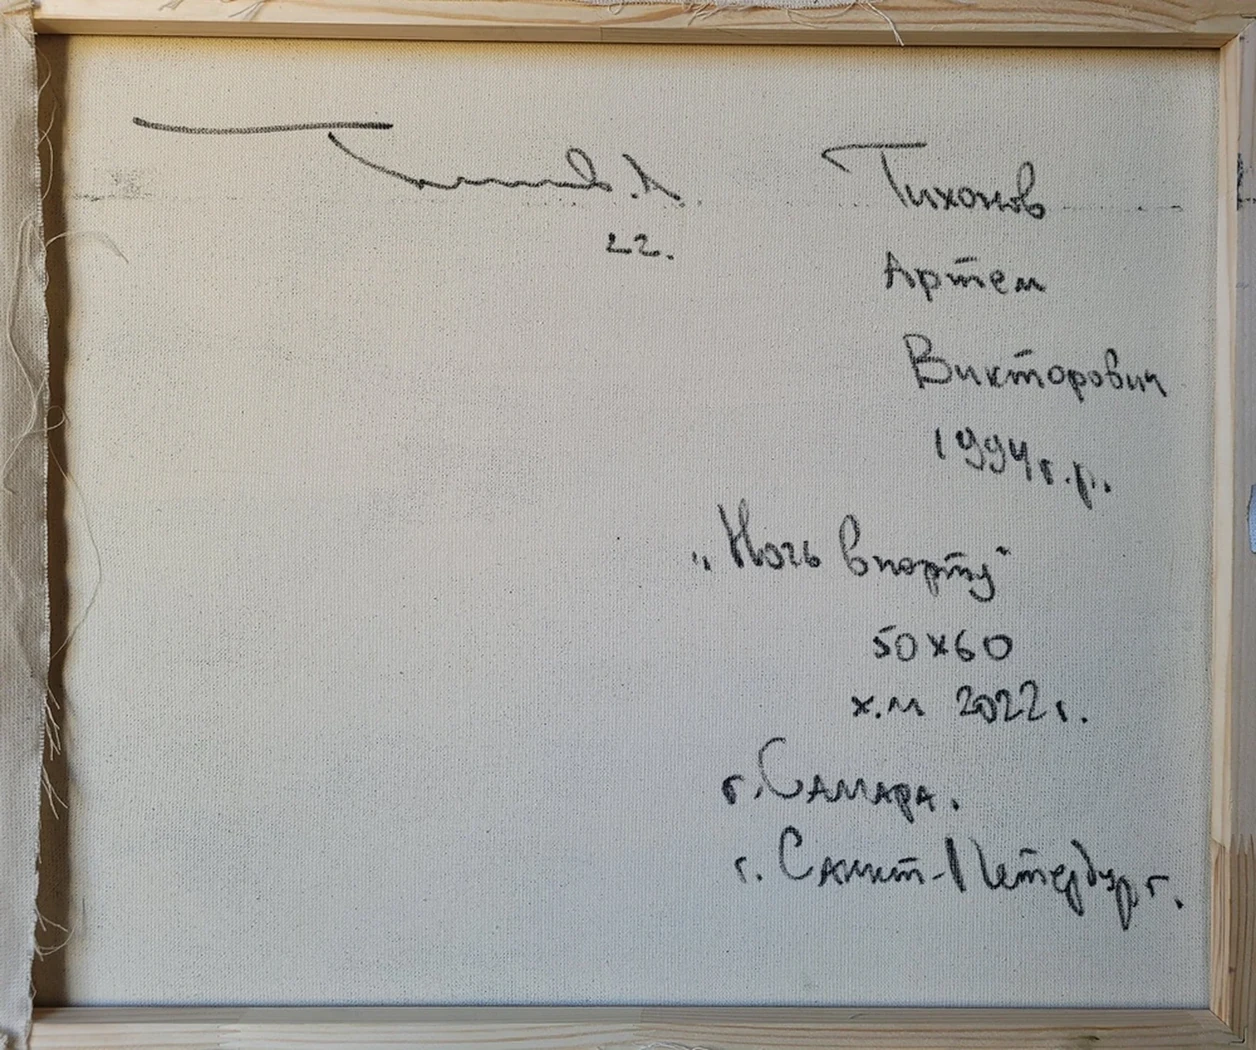 Тихонов А.
22.
Тихонов
Артем
Викторович
1994 г.р.
„Ночь в порту"
50х60
х.м 2022 г.
г. Самара.
г. Санкт-Петербург.